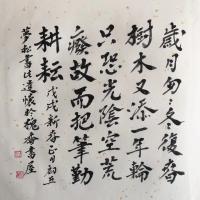 歲月匆々冬復春
樹木又添一年輪
只恐光陰空荒
癈故而把筆勤
耕耘
戊戌新春正月初五
夢松書此遣懷於槐齋書屋